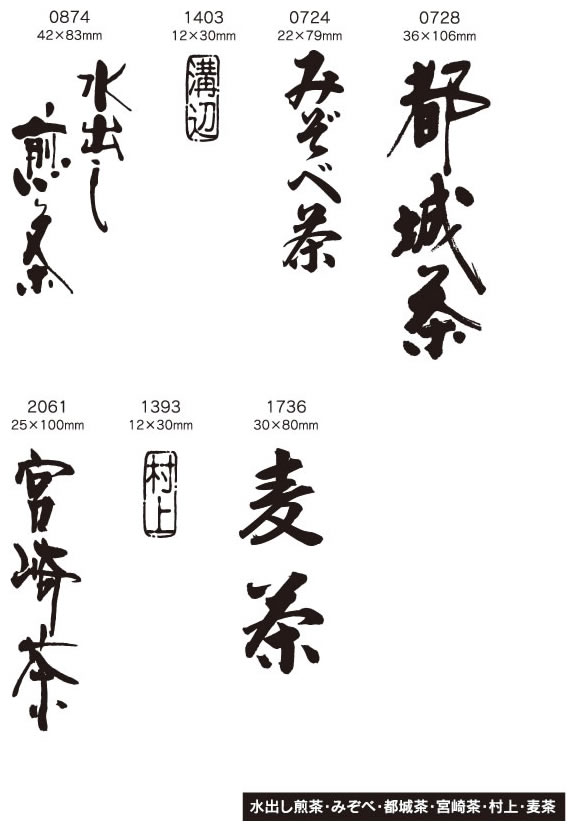 0874
42×83mm
水出し
煎茶
1403
12×30mm
溝辺
0724
22×79mm
みぞべ茶
0728
36×106mm
都城茶
2061
25×100mm
宮崎茶
1393
12×30mm
村上
1736
30×80mm
麦茶
水出し煎茶・みぞべ・都城茶・宮崎茶・村上・麦茶